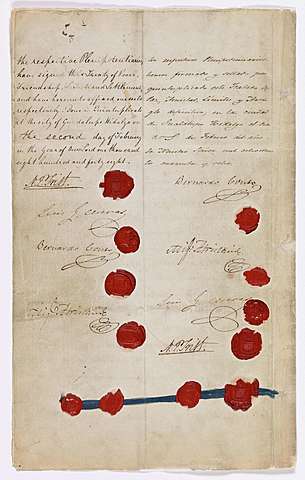 the respective Plenipotentiaries
have signed this Treaty of Peace,
Friendship, Limits and Settlement;
and have hereunto affixed our seals
respectively. Done in Quintuplicate
at the City of Guadalupe Hidalgo on
the second day of February
in the year of our Lord one thousand
eight hundred and forty eight.
N. P. Trist
Luis G. Cuevas
Bernardo Couto
Migl. Atristain
los respectivos Plenipotenciarios
hemos firmado y sellado por
quintuplicado este Tratado de
Paz, Amistad, Límites y Arreglo
definitivo, en la ciudad
de Guadalupe Hidalgo el dia
dos de Febrero del año
de
mil ochocientos
cuarenta y ocho.
Bernardo Couto
Migl. Atristain
Luis G. Cuevas
N. P. Trist